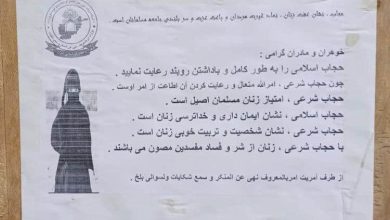 حجاب ، نشان عفت زنان ، نماد غیرت مردان و باعث عزت و سر بلندی جامعه مسلمانان است .
خوهران و مادران گرامی :
حجاب اسلامی را به طور کامل و باداشتن روبند رعایت نمایید .
چون حجاب شرعی ، امرالله متعال و رعایت کردن آن اطاعت از امر اوست .
حجاب شرعی ، امتیاز زنان مسلمان اصیل است .
حجاب اسلامی ، نشان ایمان داری و خداترسی زنان است .
حجاب شرعی ، نشان شخصیت و تربیت خوبی زنان است
با حجاب شرعی ، زنان از شر و فساد مفسدین مصون می باشند .
از طرف آمریت امربالمعروف نهی عن المنکر و سمع شکایات ولسوالی بلخ .